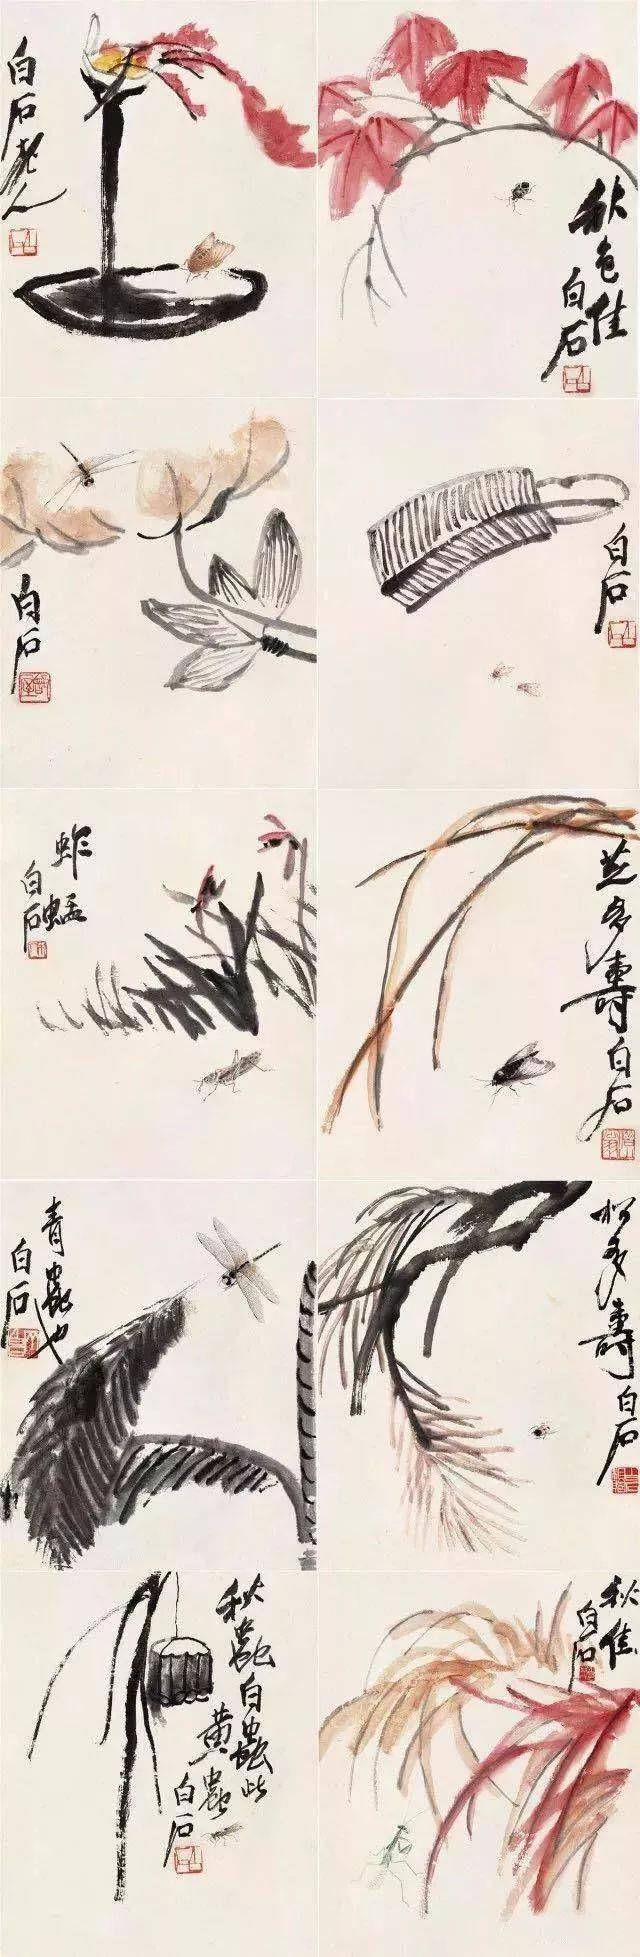 白石老人
秋色佳
白石
白石
白石
蚱蜢
白石
多寿
白石
青虫也
白石
松多壽
白石
秋蟲白蟲此
黄蟲
白石
秋佳
白石